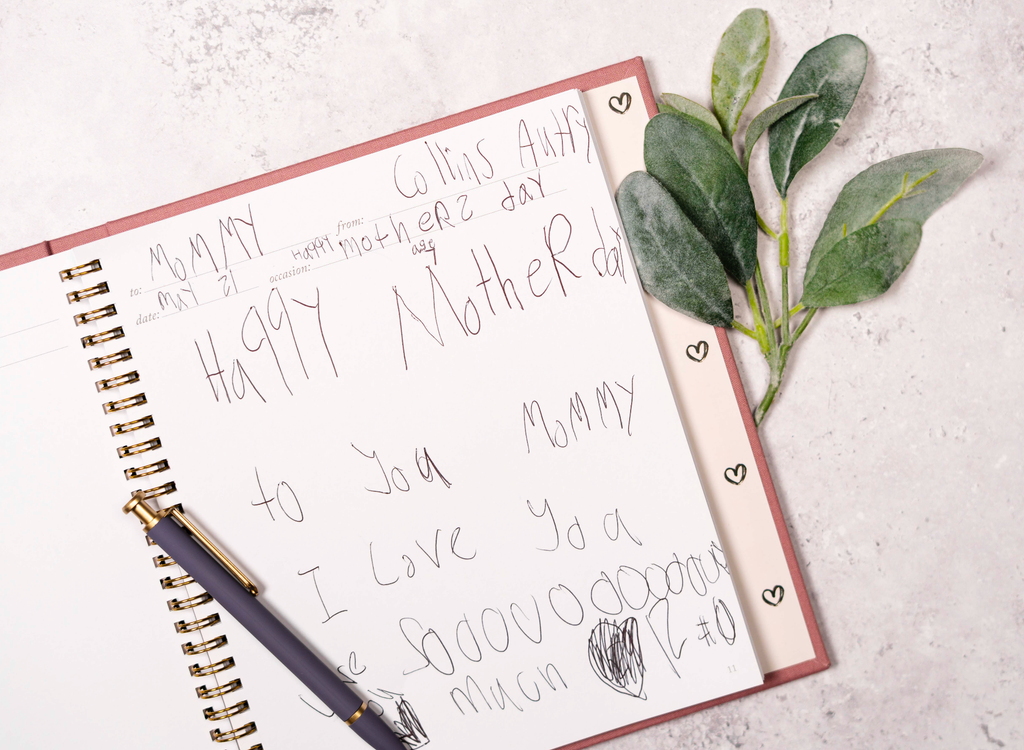 to: MoMMY from: Collins Autry
date: MAY 12 occasion: HaPPY MotheR2 day
HaPPY MotheR day
to You MoMMY
I Love You
Soooooooooooooo
Much #0
11